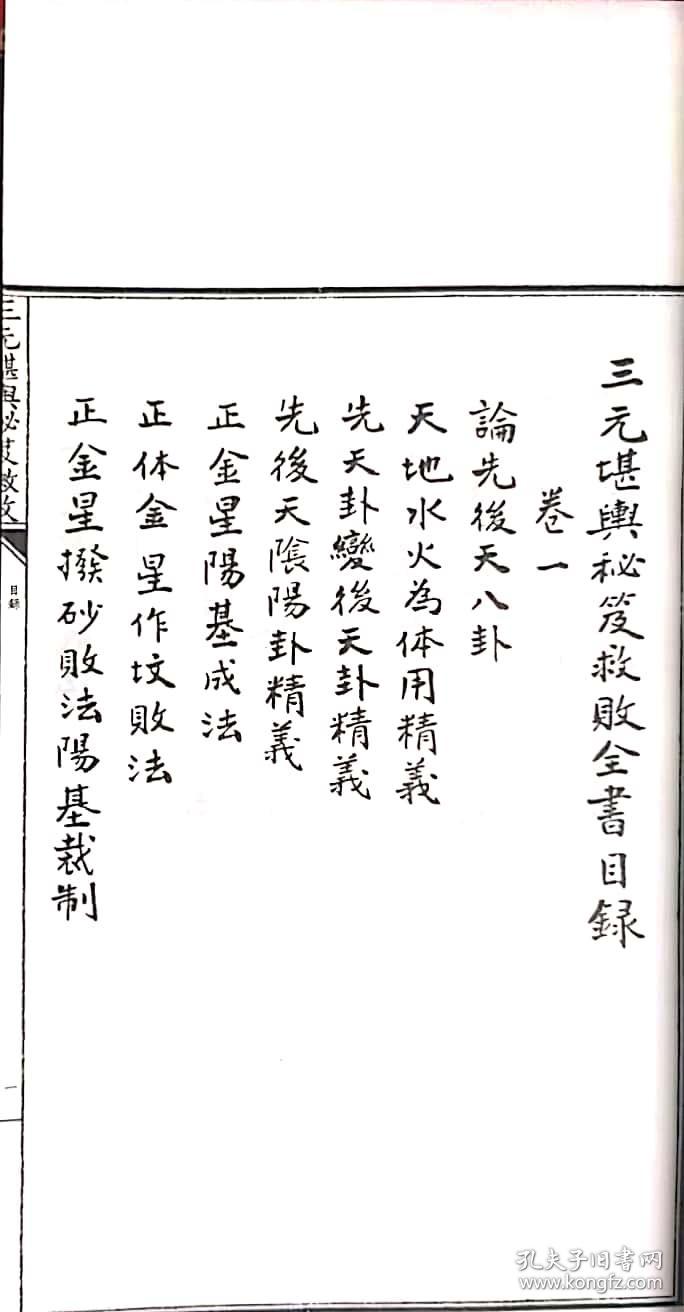 三元堪輿秘笈救敗全書目録
卷一
論先後天八卦
天地水火為体用精義
先天卦變後天卦精義
先後天陰陽卦精義
正金星陽基成法
正体金星作坟敗法
正金星撥砂敗法陽基裁制
三元堪輿秘笈救敗
目録
一
孔夫子旧书网
www.kongfz.com